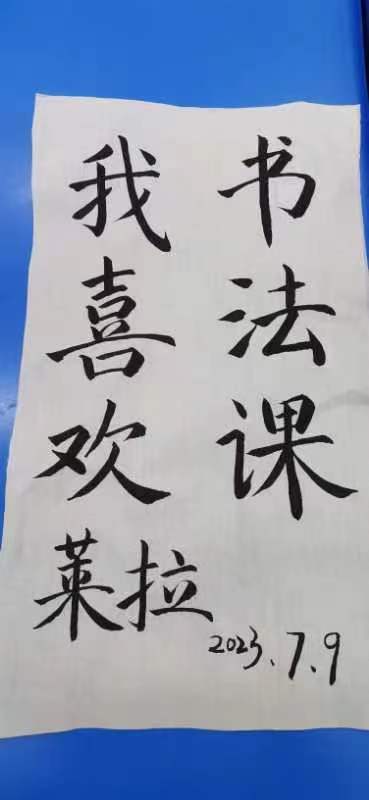 我喜欢
书法课
莱拉
2023.7.9